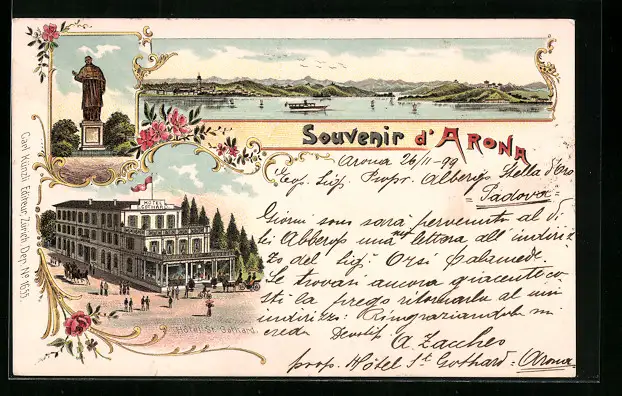 Souvenir d'ARONA
Arona 26/11-99
Egr. Sig. Propr. Albergo Stella d'Oro
Padova
Giorni sono sarà pervenuto al di
Lei Albergo una lettera all' indiriz-
zo del Sig. Orsi Calamede.
Se trovasi ancora giacente co-
stì la prego ritornarla al mio
indirizzo. Ringraziandola mi
credo
A. Zaccheo
prop. Hôtel St Gothard - Arona
HOTEL
GOTHARD
Hôtel St. Gothard.
Carl Künzli Editeur, Zürich Dep. No. 1655.